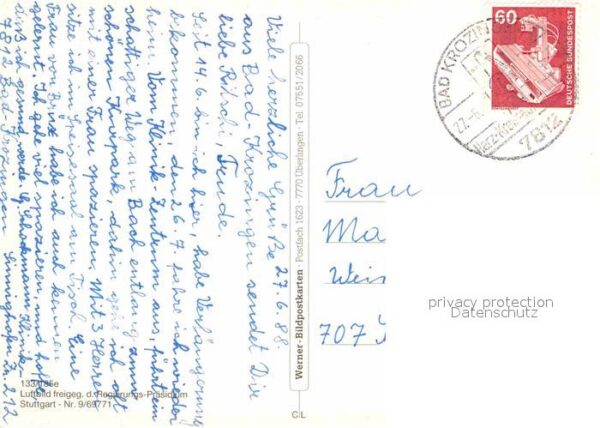 Viele herzliche Grüße 27.6.88.
aus Bad-Krozingen sendet Dir
liebe Rösli, Trude.
Seit 14.6. bin ich hier, habe Verlängerung
bekommen, den 26.7. fahre ich wieder
heim. Vom Klinik-Zentrum aus, führt ein
schattiger Weg am Bach entlang zum
schönen Kurpark, dahin gehe ich oft
mit einer Frau spazieren. Mit 3 Herren
sitze ich im Speisesaal am Tisch. Eine
Frau von habe ich auch kennen
gelernt. Ich gehe viel spazieren, und hoffe
daß ich gesund werde. Klinik-
7812 Bad-Krozingen Zi. 212
133/185e
Luftbild freigeg. d. Regierungs-Präsidium
Stuttgart - Nr. 9/69771
Werner-Bildpostkarten · Postfach 1623 · 7770 Überlingen · Tel. 07551/2066
C L
60
DEUTSCHE BUNDESPOST
BAD KROZIN
27.-6.
7812
Frau
Ma
Weis
707
privacy protection
Datenschutz